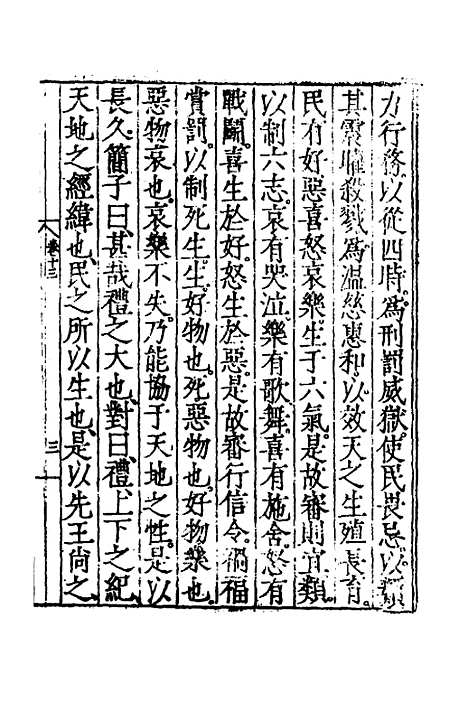 力行務。以從四時。為刑罰威獄。使民畏忌。以類
其震曜殺戮。為溫慈惠和。以效天之生殖長育。
民有好惡喜怒哀樂。生于六氣。是故審則宜類。
以制六志。哀有哭泣。樂有歌舞。喜有施舍。怒有
戰鬭。喜生於好。怒生於惡。是故審行信令。禍福
賞罰。以制死生。生。好物也。死。惡物也。好物樂也。
惡物哀也。哀樂不失。乃能協于天地之性。是以
長久。簡子曰、甚哉禮之大也、對曰、禮、上下之紀、
天地之經緯也、民之所以生也、是以先王尚之、
卷十三
三